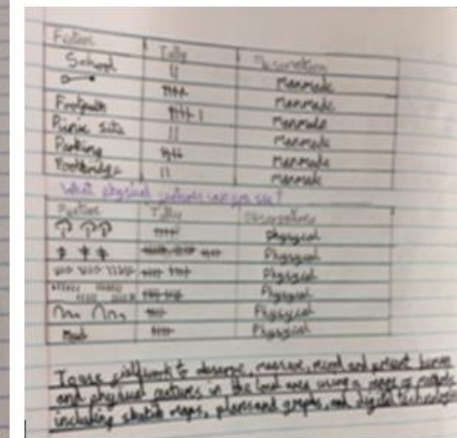 Feature Tally Observation
School Manmade
Manmade
Footpath Manmade
Picnic site Manmade
Parking Manmade
Footbridge Manmade
What physical features can you see?
Feature Tally Observations
Physycal
Physycal
Physycal
Physycal
Physycal
Physycal
To use fieldwork to observe, measure, record and present human
and physical features in the local area using a range of methods
including sketch maps, plans and graphs, and digital technologies